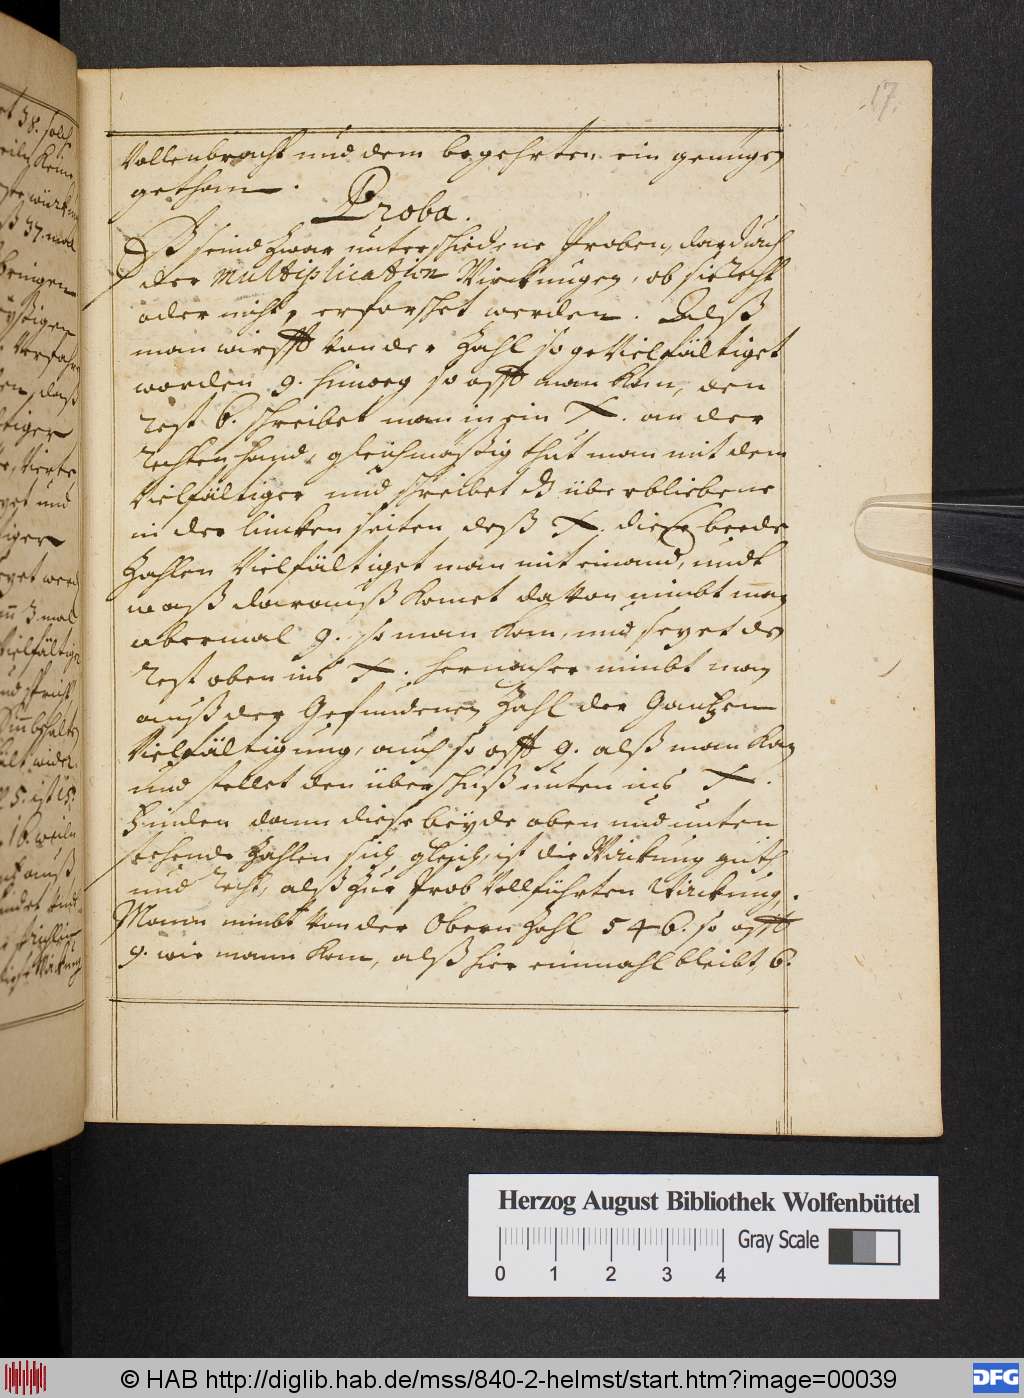 17.
Vollenbracht und dem begehrten ein genügen
gethan.
Proba.
Es seind zwar unterschiedene Proben, dardurch
der Multiplication Wirckungen, ob sie recht
oder nicht, erforschet werden. Alß
man wirfft von der Zahl so geVielfältiget
worden 9. hinweg so offt man kan, den
rest 6. schreibet man in ein X. an der
rechten hand, gleichmäßig thut man mit dem
Vielfältiger und schreibet dz überbliebene
in der lincken seiten deß X. diese beede
Zahlen Vielfältiget man mit einand, undt
waß darauß komet davon nimbt man
abermal 9. so man kan, und sezet den
rest oben ins X. hernacher nimbt man
auß der Gefundenen Zahl der Gantzen
Vielfältigung, auch so offt 9. alß man kan
und stellet den überschuß unten ins X.
Finden dann diese beyde oben und unten
stehende Zahlen sich gleich, ist die Wirckung guth
und recht, alß zur Prob Vollführten Wirckung,
Mann nimbt von der Obern Zahl 546. so offt
9. wie mann kan, alß hier einmahl bleibt 6.
Herzog August Bibliothek Wolfenbüttel
Gray Scale
0 1 2 3 4
© HAB http://diglib.hab.de/mss/840-2-helmst/start.htm?image=00039
DFG